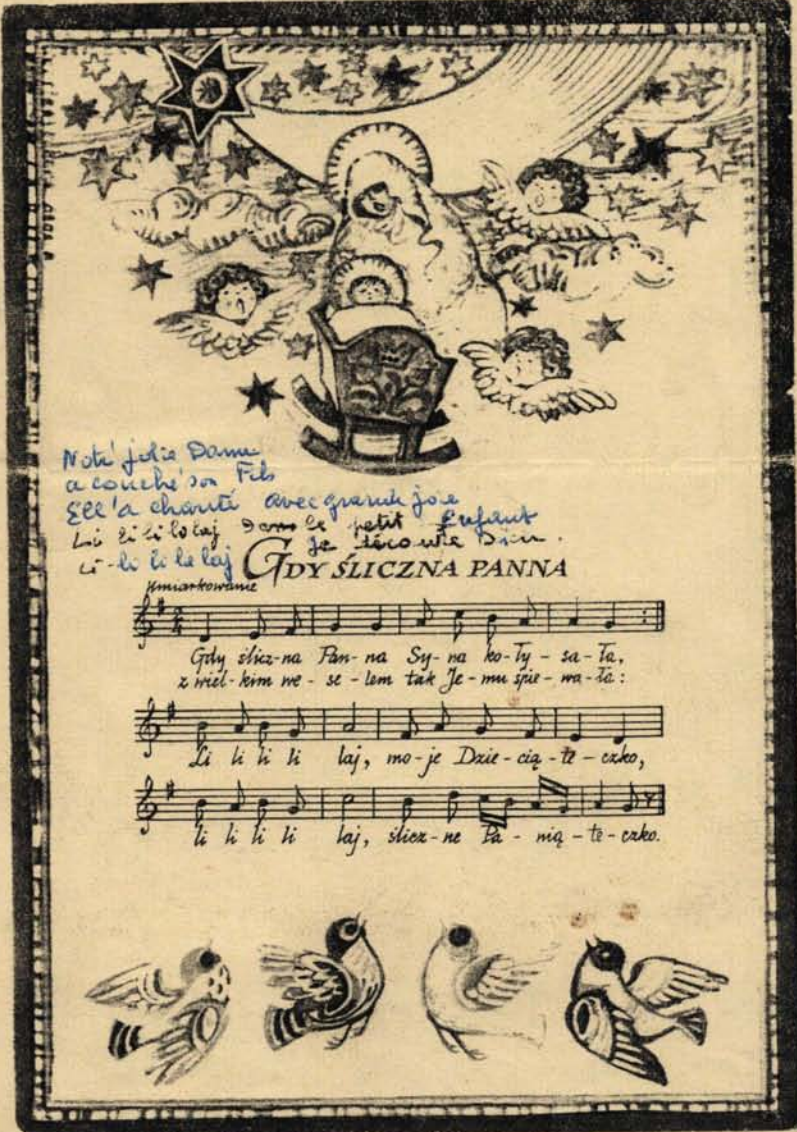 Notr' jolie Dame
a couché son Fils
Ell'a chanté avec grande joie
Li li li li laj Dans le petit Enfant
Li li li li laj Je Dieu.
GDY ŚLICZNA PANNA
Umiarkowanie
Gdy ślicz-na Pan-na Sy-na ko-ły-sa-ła,
z wiel-kim we-se-lem tak Je-mu śpie-wa-ła:
Li li li li laj, mo-je Dzie-cią-te-czko,
li li li li laj, ślicz-ne Pa-nią-te-czko.